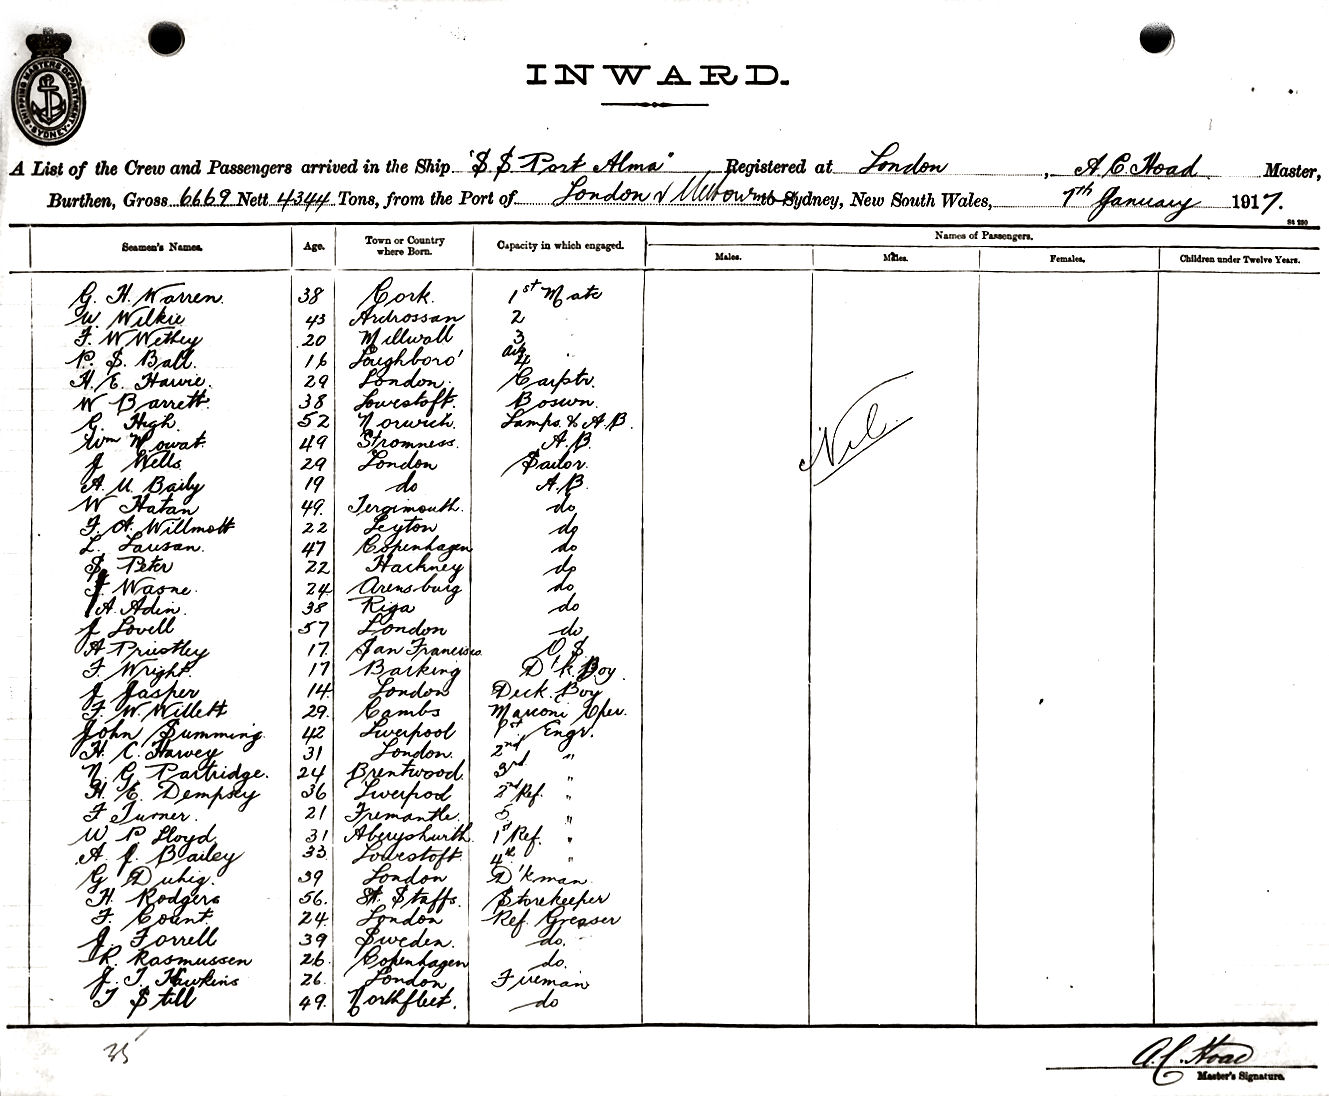 SHIPPING MASTERS DEPARTMENT SYDNEY
INWARD.
A List of the Crew and Passengers arrived in the Ship "S S Port Alma" Registered at London, A C Hoad Master,
Burthen, Gross 6669 Nett 4344 Tons, from the Port of London v Melbourne to Sydney, New South Wales, 7th January 1917.
Names of Passengers.
Seamen's Names. Age. Town or Country where Born. Capacity in which engaged. Males. Males. Females. Children under Twelve Years.
G. H. Warren. 38 Cork. 1st Mate
W Wilkie 43 Ardrossan 2
F. W Wethey 20 Millwall 3
P. S. Ball 16 Loughboro' 4
H. E. Hawie. 29 London. Carptr.
W Barrett. 38 Lowestoft. Boswn.
C. High. 52 Norwich. Lamps & A.B.
Wm Mowat. 49 Stromness. A.B.
J Wells 29 London Sailor.
A. U. Baily 19 do A.B.
W Hatan 49. do
F. A. Willmott 22 Leyton do
L. Lausan. 47 Copenhagen do
S. Peter 22 Hackney do
F. Wasne. 24 Arensburg do
A. Adin. 38 Riga do
J Lovell 57 London do
A Priestley 17. San Francisco. O S.
F. Wright. 17 Barking D'k. Boy.
J Jasper 14 London Deck. Boy
F. W. Willett 29. Cambs Marconi Oper.
John Summing 42 Liverpool 1st Engr.
H. C. Harvey 31 London. 2nd "
N. G. Partridge. 24 Brentwood. 3rd "
H. E. Dempsey 36 Liverpool 2nd Ref. "
F Turner. 21 Fremantle. 5 "
W P Lloyd 31 1st Ref. "
A. J. Bailey 33. Lowestoft. 4th "
G Duhig. 39 London D'kman.
H. Rodgers 56. St. Staffs. Storekeeper
F. Count. 24. London Ref. Greaser
J. Forrell 39 Sweden. do.
R. Rasmussen 26. Copenhagen do.
J. T. Hawkins 26. London Fireman
T Still 49. Northfleet. do
Nil.
35
A. C. Hoad
Master's Signature.